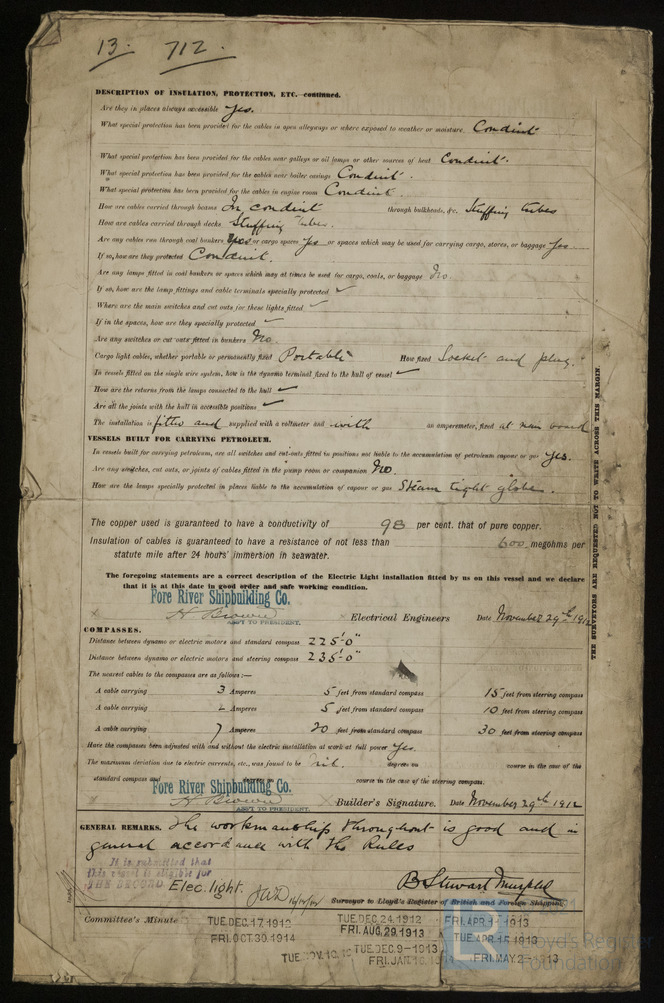 13. 712.
DESCRIPTION OF INSULATION, PROTECTION, ETC. continued.
Are they in places always accessible Yes.
What special protection has been provided for the cables in open alleyways or where exposed to weather or moisture Conduit
What special protection has been provided for the cables near galleys or oil lamps or other sources of heat Conduit.
What special protection has been provided for the cables near boiler casings Conduit.
What special protection has been provided for the cables in engine room Conduit.
How are cables carried through beams In conduit through bulkheads, &c. Stuffing tubes
How are cables carried through decks Stuffing Tubes.
Are any cables run through coal bunkers Yes or cargo spaces Yes or spaces which may be used for carrying cargo, stores, or baggage Yes
If so, how are they protected Conduit.
Are any lamps fitted in coal bunkers or spaces which may at times be used for cargo, coals, or baggage No.
If so, how are the lamp fittings and cable terminals specially protected ✓
Where are the main switches and cut outs for these lights fitted ✓
If in the spaces, how are they specially protected ✓
Are any switches or cut outs fitted in bunkers No
Cargo light cables, whether portable or permanently fixed Portable How fixed Socket and plug.
In vessels fitted on the single wire system, how is the dynamo terminal fixed to the hull of vessel ✓
How are the returns from the lamps connected to the hull ✓
Are all the joints with the hull in accessible positions ✓
The installation is fitted and supplied with a voltmeter and with an amperemeter, fixed at main board
VESSELS BUILT FOR CARRYING PETROLEUM.
In vessels built for carrying petroleum, are all switches and cut-outs fitted in positions not liable to the accumulation of petroleum vapour or gas Yes.
Are any switches, cut outs, or joints of cables fitted in the pump room or companion No.
How are the lamps specially protected in places liable to the accumulation of vapour or gas Steam tight globes.
The copper used is guaranteed to have a conductivity of 98 per cent. that of pure copper.
Insulation of cables is guaranteed to have a resistance of not less than 600 megohms per
statute mile after 24 hours' immersion in seawater.
The foregoing statements are a correct description of the Electric Light installation fitted by us on this vessel and we declare
that it is at this date in good order and safe working condition.
Fore River Shipbuilding Co.
H Brown Electrical Engineers Date November 29th 1912
ASST TO PRESIDENT.
COMPASSES.
Distance between dynamo or electric motors and standard compass 225'-0"
Distance between dynamo or electric motors and steering compass 235'-0"
The nearest cables to the compasses are as follows:—
A cable carrying 3 Amperes 5 feet from standard compass 15 feet from steering compass
A cable carrying Amperes 5 feet from standard compass 10 feet from steering compass
A cable carrying 7 Amperes 20 feet from standard compass 30 feet from steering compass
Have the compasses been adjusted with and without the electric installation at work at full power Yes.
The maximum deviation due to electric currents, etc., was found to be nil. degrees on course in the case of the
standard compass and degrees on course in the case of the steering compass.
Fore River Shipbuilding Co.
H Brown Builder's Signature. Date November 29th 1912
ASST TO PRESIDENT.
GENERAL REMARKS. The workmanship throughout is good and in
general accordance with the Rules
It is submitted that
this vessel is eligible for
THE RECORD Elec. light.
B Stewart Murphy
Surveyor to Lloyd's Register of British and Foreign Shipping.
Committee's Minute TUE.DEC.17.1912 TUE.DEC.24.1912 FRI.APR.11.1913
FRI.OCT.30.1914 FRI.AUG.29.1913 TUE.APR.15.1913
TUE.DEC.9-1913 FRI.MAY.2-1913
THE SURVEYORS ARE REQUESTED NOT TO WRITE ACROSS THIS MARGIN.
Lloyd's Register
Foundation